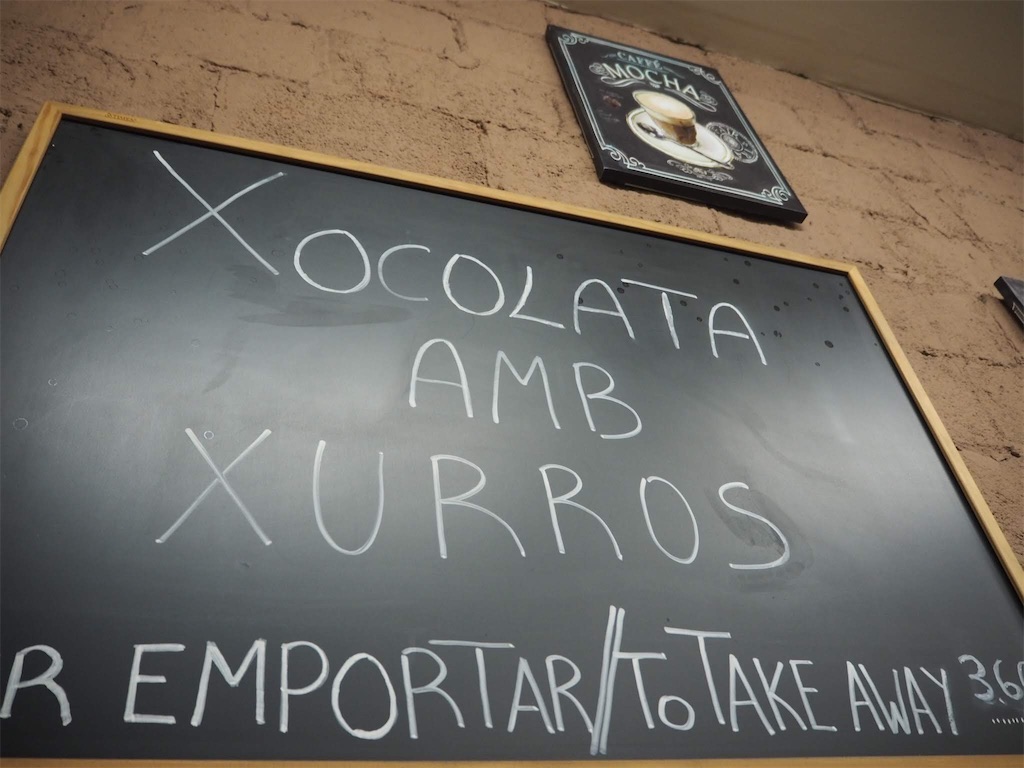 CAFFÈ
MOCHA
XOCOLATA
AMB
XURROS
R EMPORTAR//TO TAKE AWAY 3.6